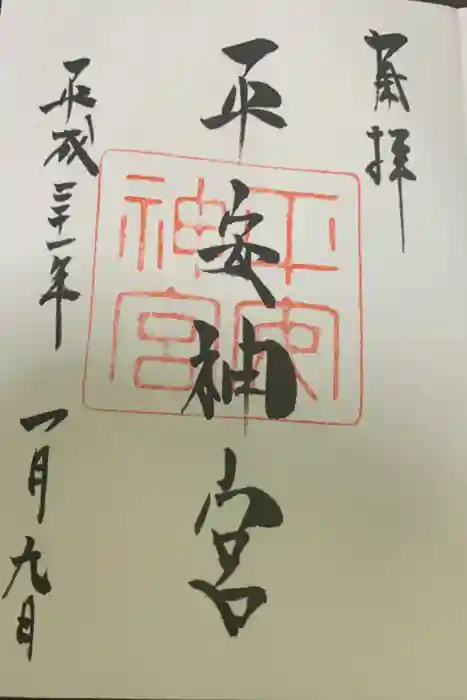 奉拝
平安神宮
平安神宮
平成三十一年
一月九日